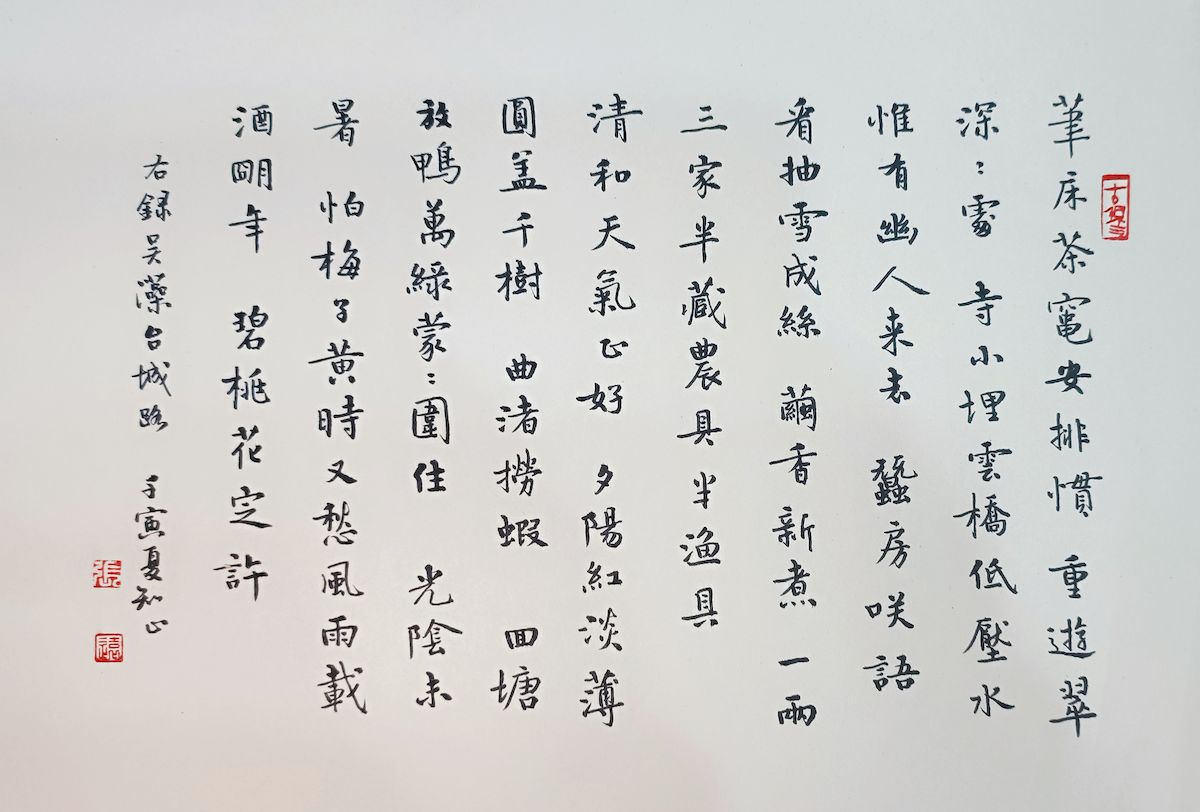 筆床茶竈安排慣 重遊翠
深:處 寺小埋雲橋低壓水
惟有幽人来去 蠶房咲語
看抽雪成絲 繭香新煮 一兩
三家半藏農具半渔具
清和天氣正好 夕陽紅淡薄
圓盖千樹 曲渚撈蝦 回塘
放鴨萬綠蒙:圍住 光陰未
暑 怕梅子黄時又愁風雨載
酒明年 碧桃花定許
右録吴藻台城路 壬寅夏知止
張